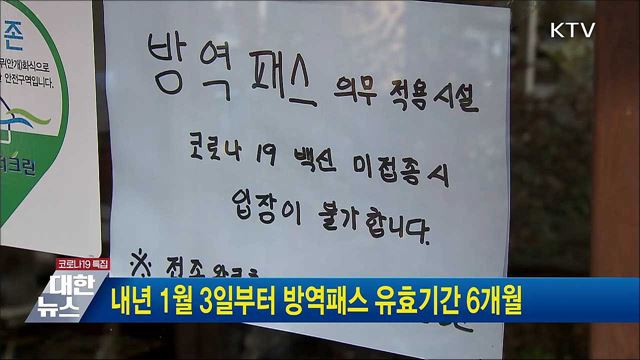 KTV
존
무(안개)화식으로
안전구역입니다.
크린
방역패스 의무 적용시설
코로나 19 백신 미접종시
입장이 불가합니다.
※
코로나19 특집
대한
뉴스
내년 1월 3일부터 방역패스 유효기간 6개월